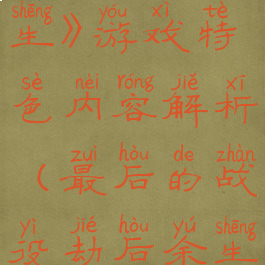 shēng yóu xì tè
生》游戏特
sè nèi róng jiě xī
色内容解析
zuì hòu de zhàn
（最后的战
yì jié hòu yú shēng
役劫后余生